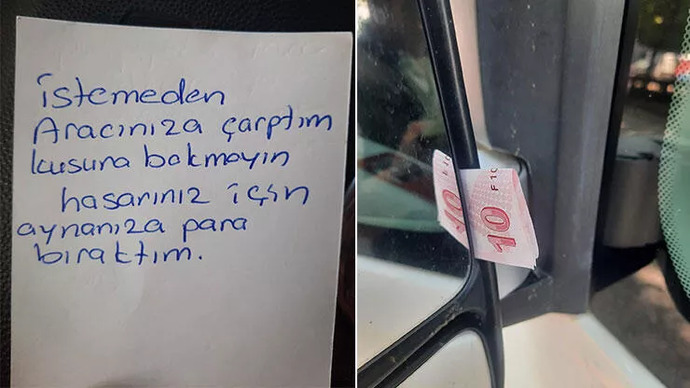 istemeden
Aracınıza çarptım
kusura bakmayın
hasarınız için
aynanıza para
bıraktım.
10
10
F10